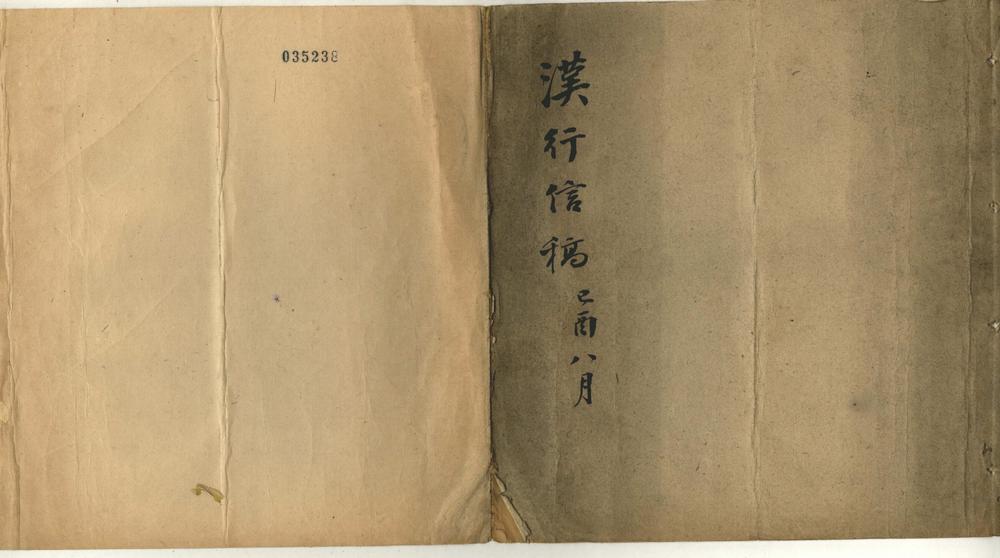 漢行信稿 己酉八月
035238